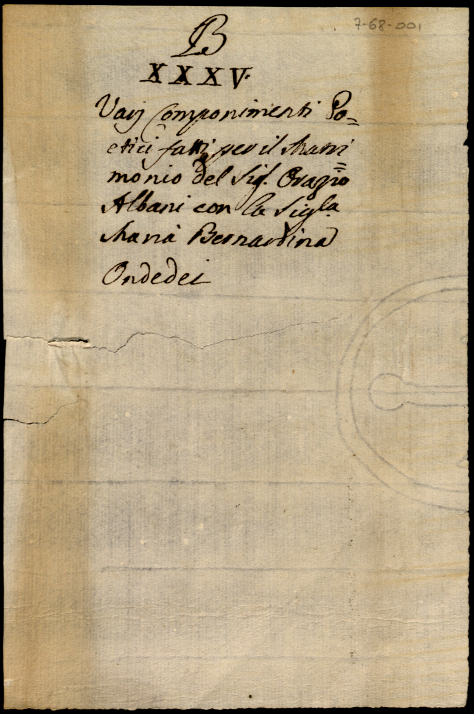 7-68-001
B
XXXV.
Varij Componimenti Po=
etici fatti per il Matri=
monio del Sig.r Orazio
Albani con la Sig.ra
Maria Bernardina
Ondedei